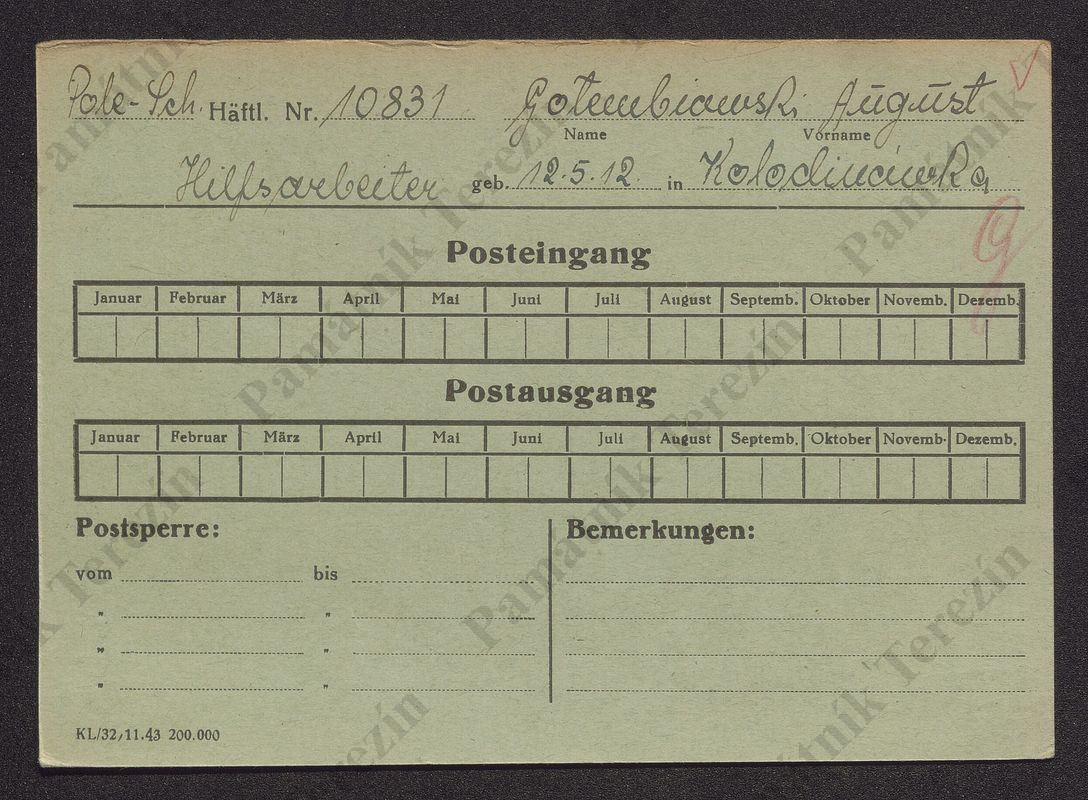 Pole-Sch. Häftl. Nr. 10831 Gotembiowski August
Name Vorname
Hilfsarbeiter geb. 12.5.12 in
Posteingang
Januar Februar März April Mai Juni Juli August Septemb. Oktober Novemb. Dezemb.
Postausgang
Januar Februar März April Mai Juni Juli August Septemb. Oktober Novemb. Dezemb.
Postsperre: Bemerkungen:
vom bis
" "
" "
" "
KL/32/11.43 200.000
Památník Terezín